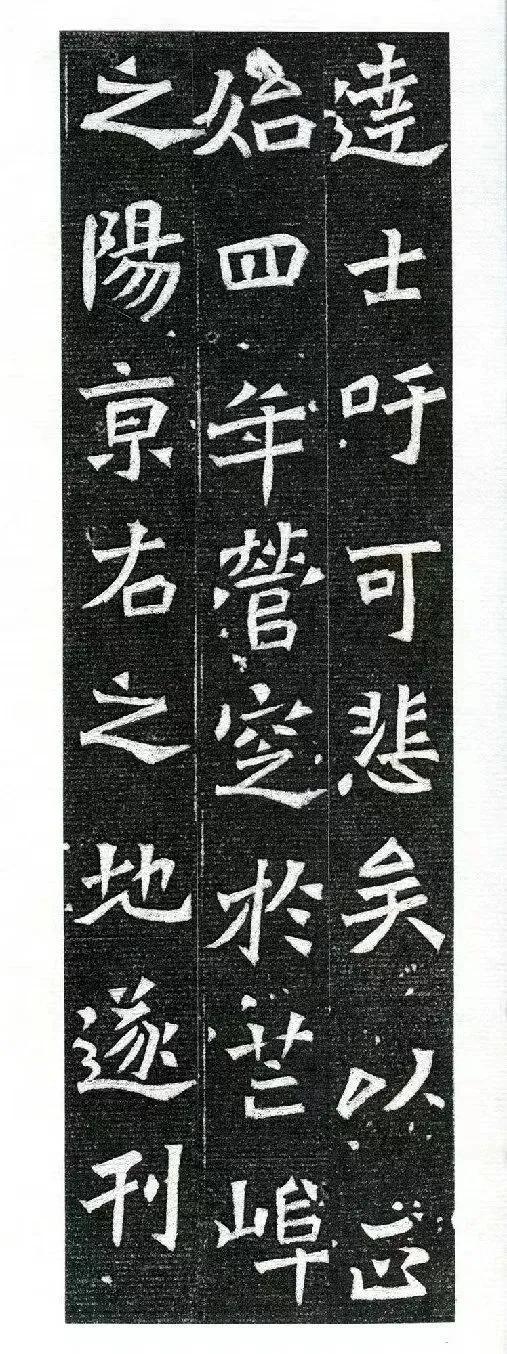 達士吁可悲矣以正
始四年營窆於芒
之陽亰右之地遂刊